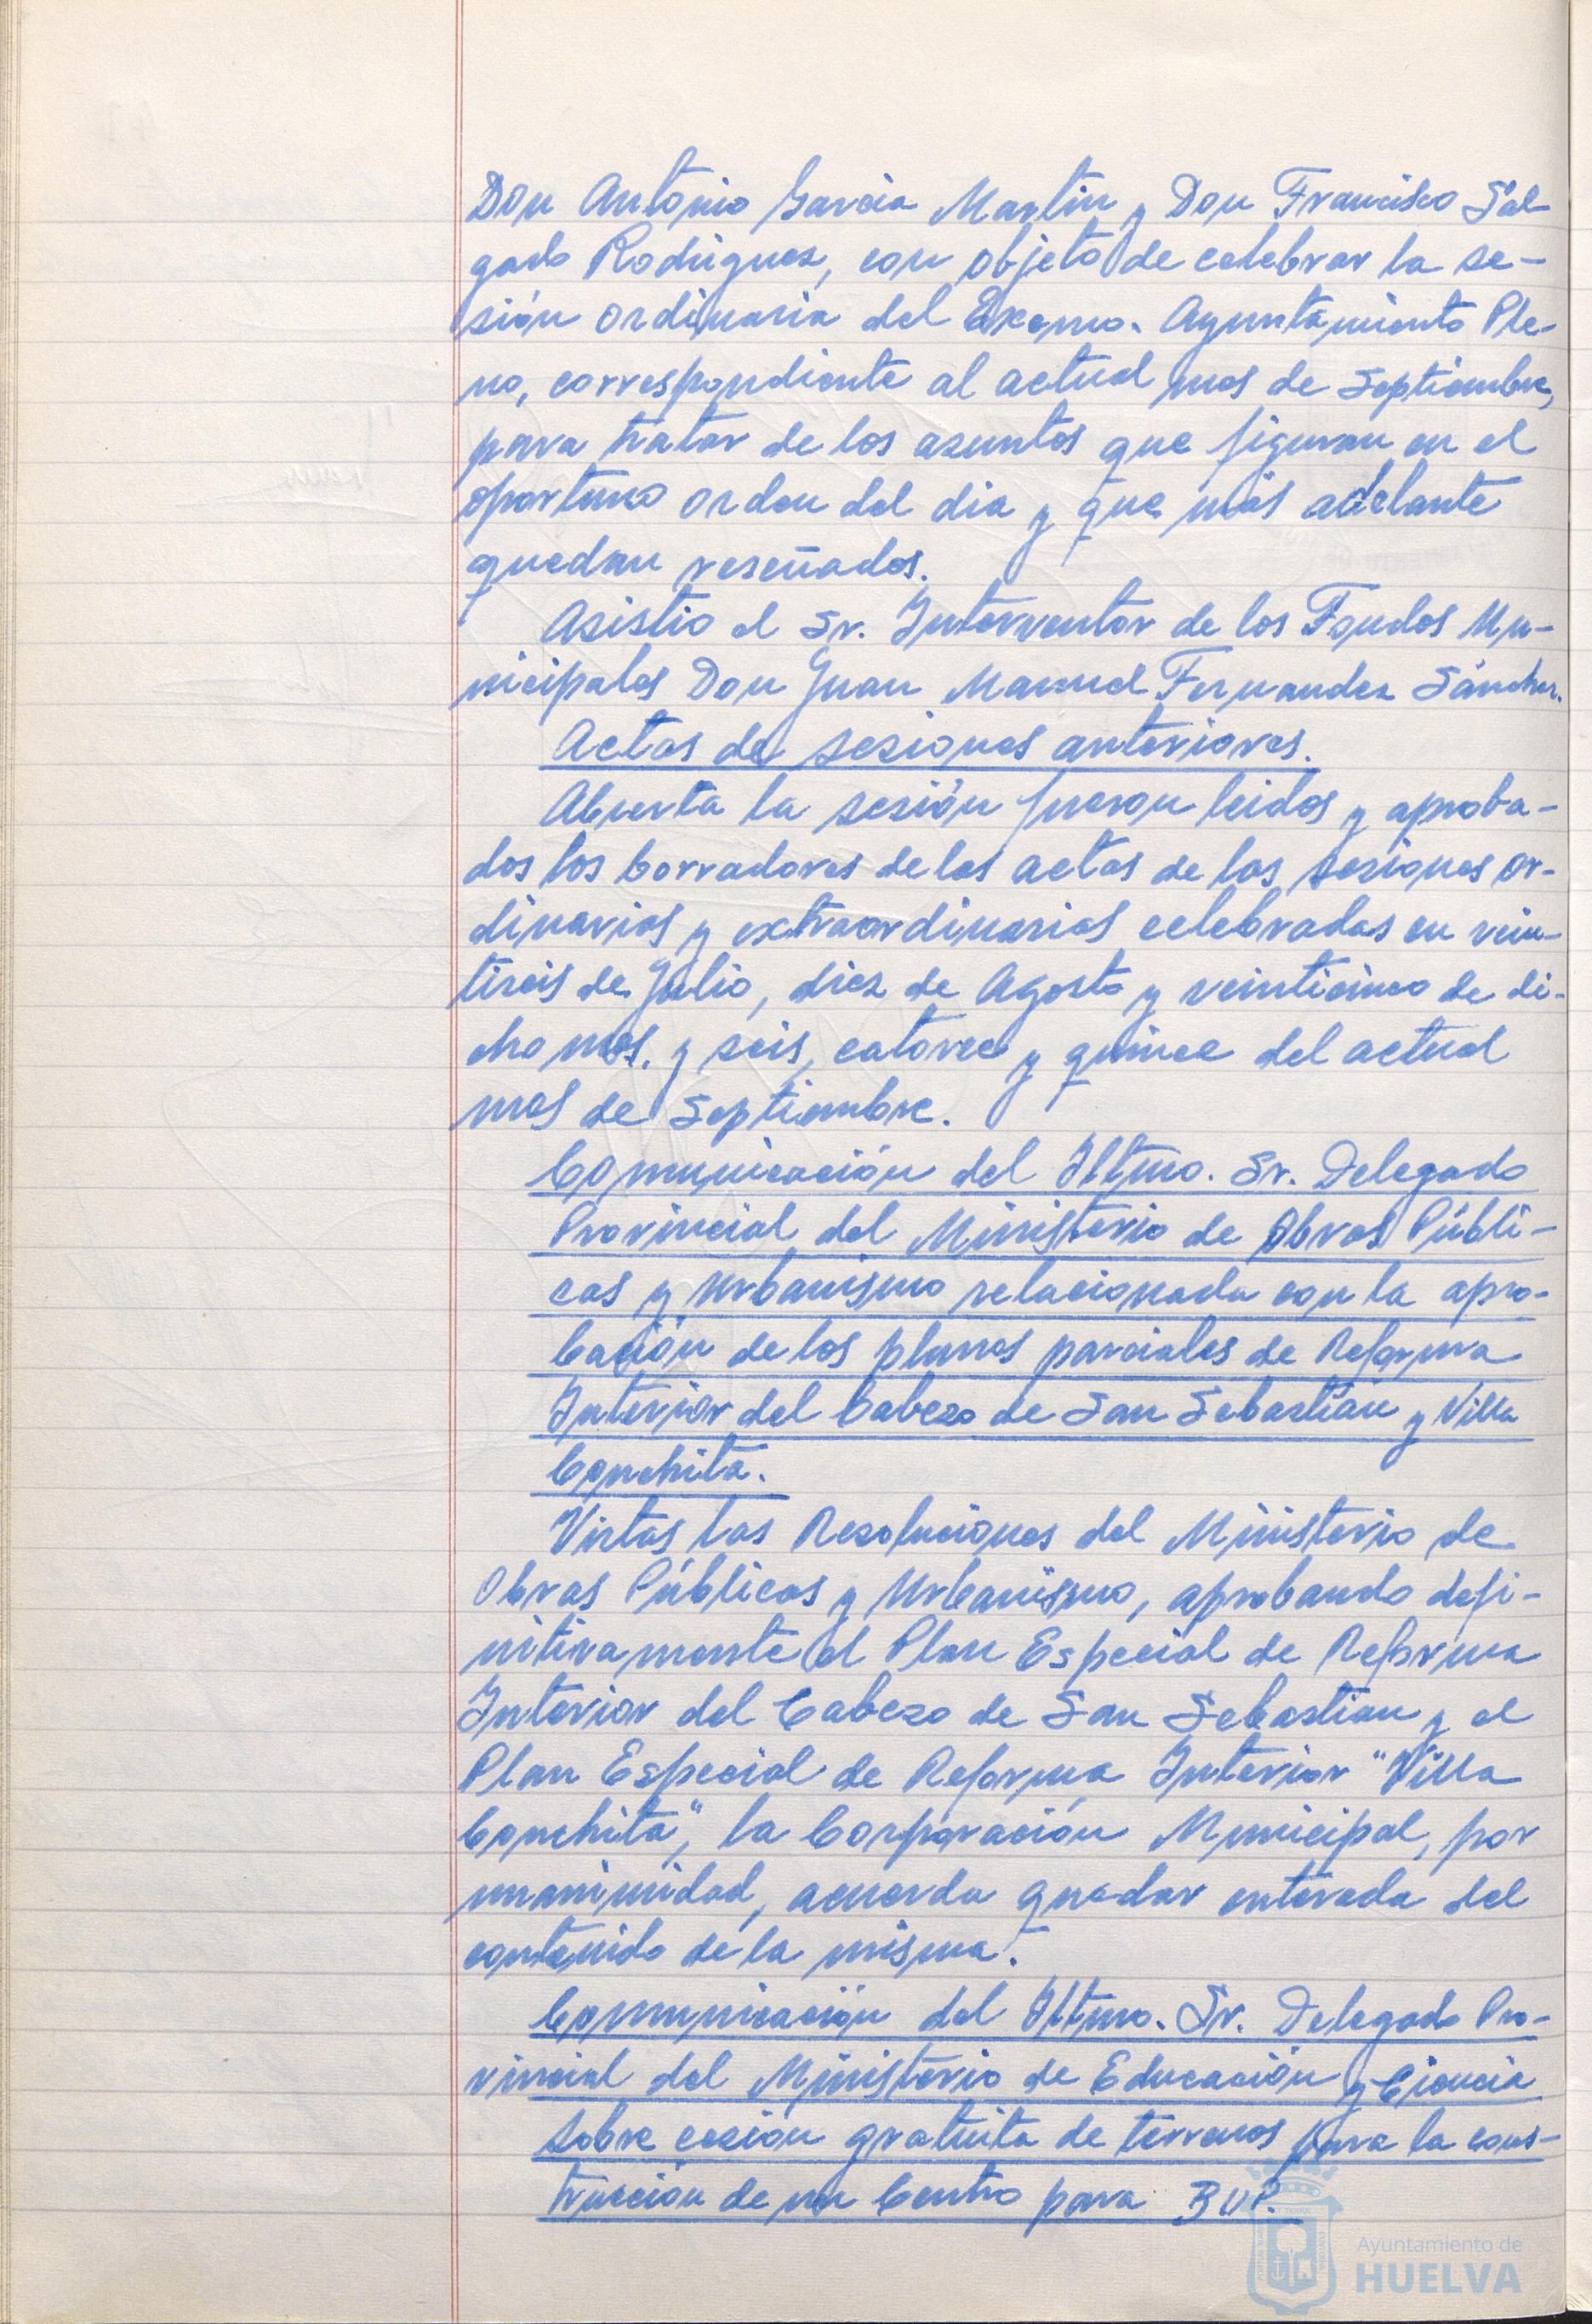 Don Antonio García Martín y Don Francisco Sal-
gado Rodríguez, con objeto de celebrar la se-
sión ordinaria del Excmo. Ayuntamiento Ple-
no, correspondiente al actual mes de Septiembre,
para tratar de los asuntos que figuran en el
oportuno orden del dia y que más adelante
quedan reseñados.
Asistio el Sr. Interventor de los Fondos Mu-
nicipales Don Juan Manuel Fernandez Sánchez.
Actas de sesiones anteriores.
Abierta la sesión fueron leidos y aproba-
dos los borradores de las actas de las sesiones or-
dinarias y extraordinarias celebradas en vein-
tiseis de Julio, diez de Agosto y veinticinco de di-
cho mes. y seis, catorce y quince del actual
mes de Septiembre.
Comunicación del Iltmo. Sr. Delegado
Provincial del Ministerio de Obras Públi-
cas y Urbanismo relacionada con la apro-
bación de los planes parciales de Reforma
Interior del Cabezo de San Sebastián y Villa
Conchita.
Vistas las Resoluciones del Ministerio de
Obras Públicas y Urbanismo, aprobando defi-
nitivamente el Plan Especial de Reforma
Interior del Cabezo de San Sebastian y el
Plan Especial de Reforma Interior "Villa
Conchita", la Corporación Municipal, por
unanimidad, acuerda quedar enterada del
contenido de la misma.
Comunicación del Iltmo. Sr. Delegado Pro-
vincial del Ministerio de Educación y Ciencia
sobre cesión gratuita de terrenos para la cons-
trucción de un Centro para BUP.
Ayuntamiento de
HUELVA